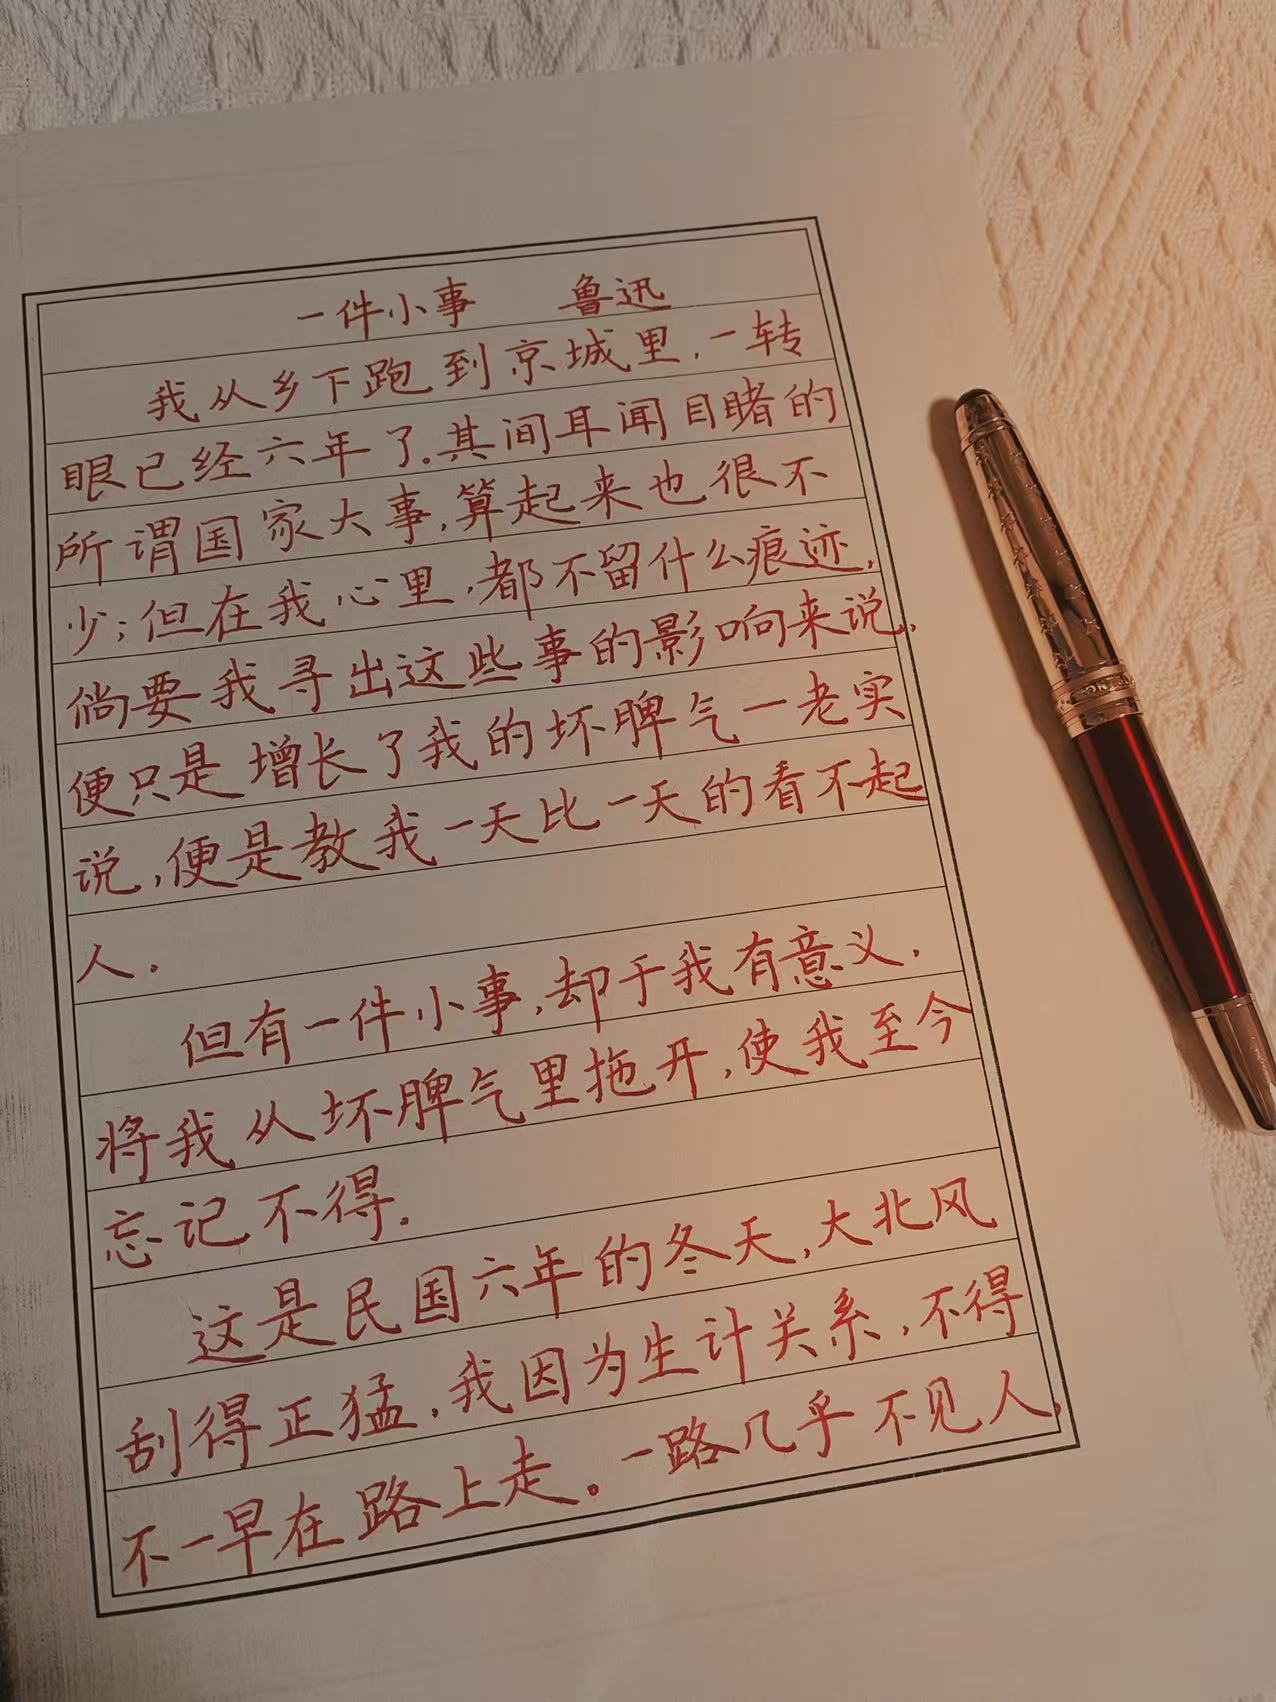 一件小事 鲁迅
我从乡下跑到京城里,一转
眼已经六年了.其间耳闻目睹的
所谓国家大事,算起来也很不
少;但在我心里,都不留什么痕迹,
倘要我寻出这些事的影响来说,
便只是增长了我的坏脾气一老实
说,便是教我一天比一天的看不起
人.
但有一件小事,却于我有意义.
将我从坏脾气里拖开,使我至今
忘记不得.
这是民国六年的冬天,大北风
刮得正猛,我因为生计关系,不得
不一早在路上走。一路几乎不见人,